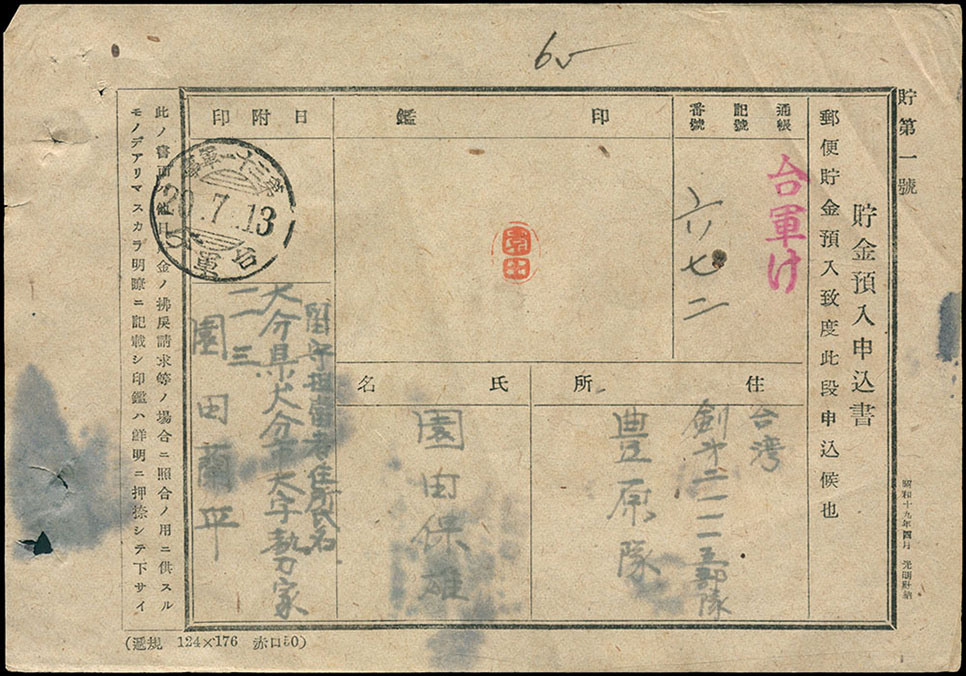 65
貯第一號
貯金預入申込書
郵便貯金預入致度此段申込候也
昭和十九年四月
通帳
記號
番號
台軍け
六八七二
印鑑
園田
日附印
20.7.13
台軍
住所
台湾
豊原隊
氏名
園田保雄
留守担当者住所氏名
大分県大分市大字勢家
園田蘭平
此ノ書面ハ
金ノ拂戻請求等ノ場合ニ照合ノ用ニ供スル
モノデアリマスカラ明瞭ニ記載シ印鑑ハ鮮明ニ押捺シテ下サイ
(遞規 124×176 赤口50)